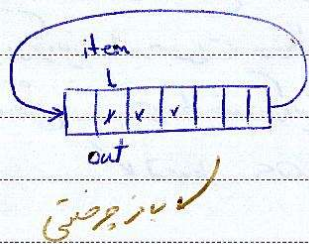 item
out
بافر چرخشی